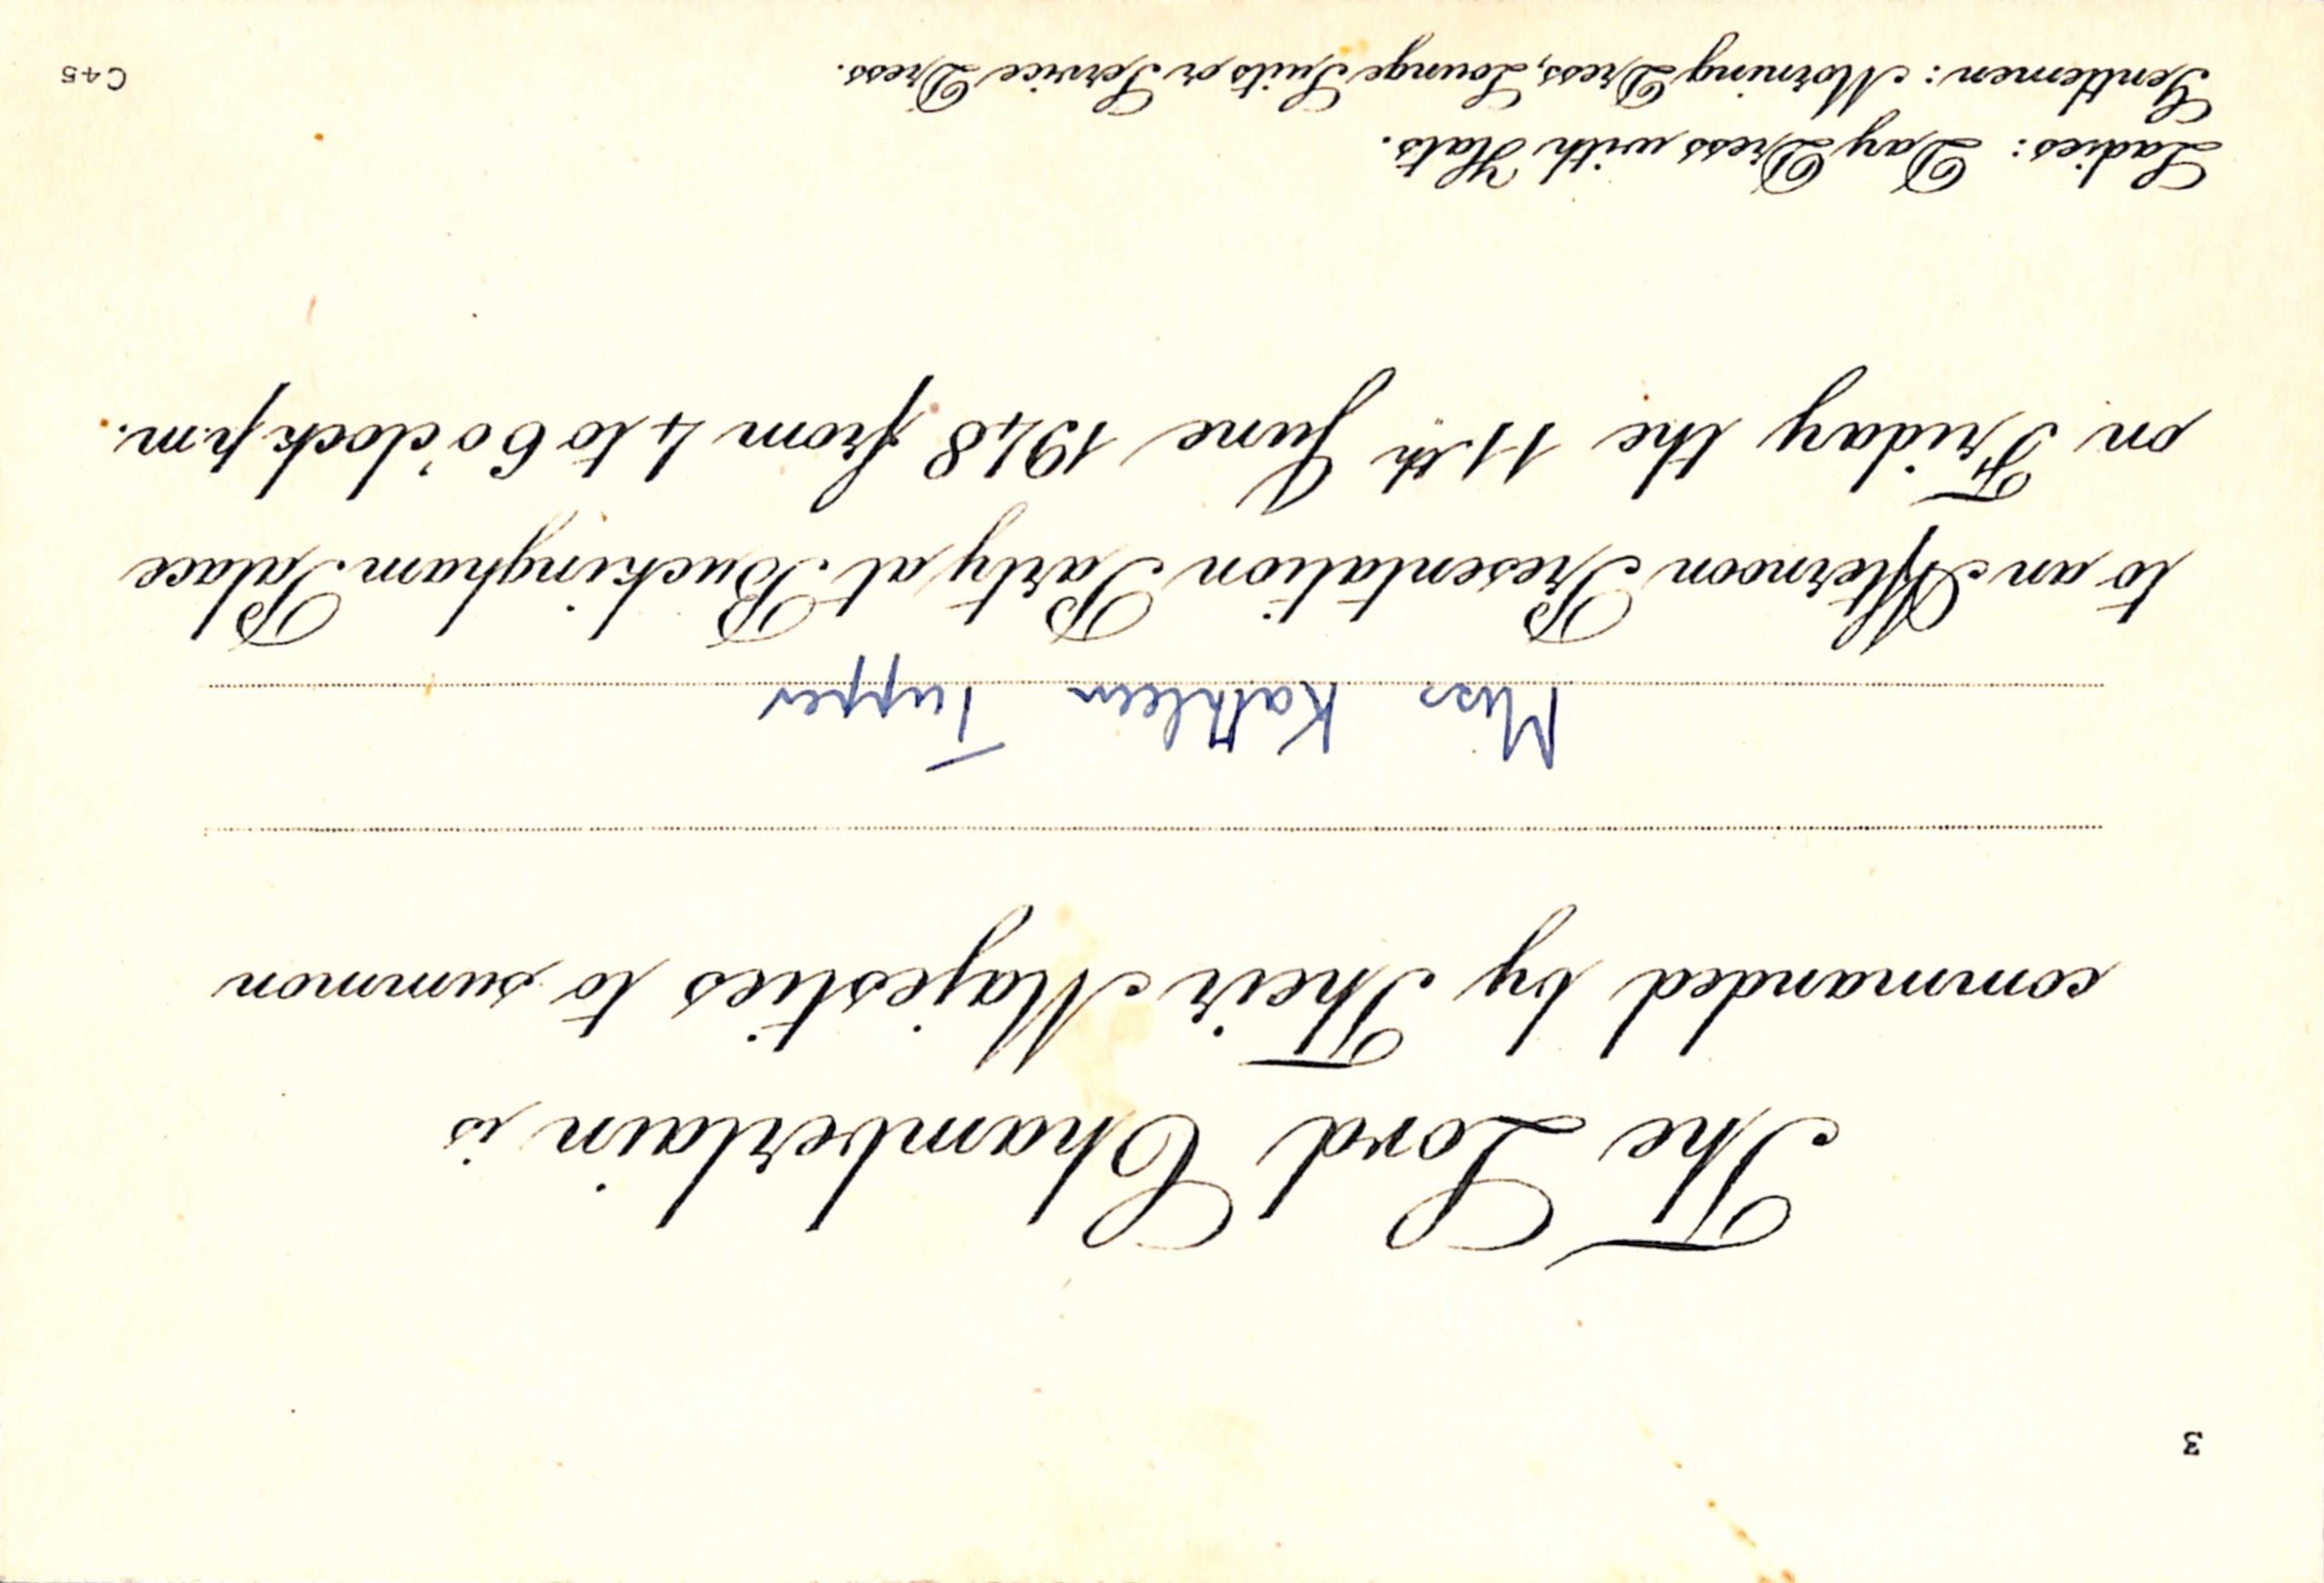 3
The Lord Chamberlain is
commanded by Their Majesties to summon
Miss Kathleen Tupper
to an Afternoon Presentation Party at Buckingham Palace
on Friday the 11th June 1948 from 4 to 6 o'clock p.m.
Ladies: Day Dress with Hats.
Gentlemen: Morning Dress, Lounge Suits or Service Dress.
C45